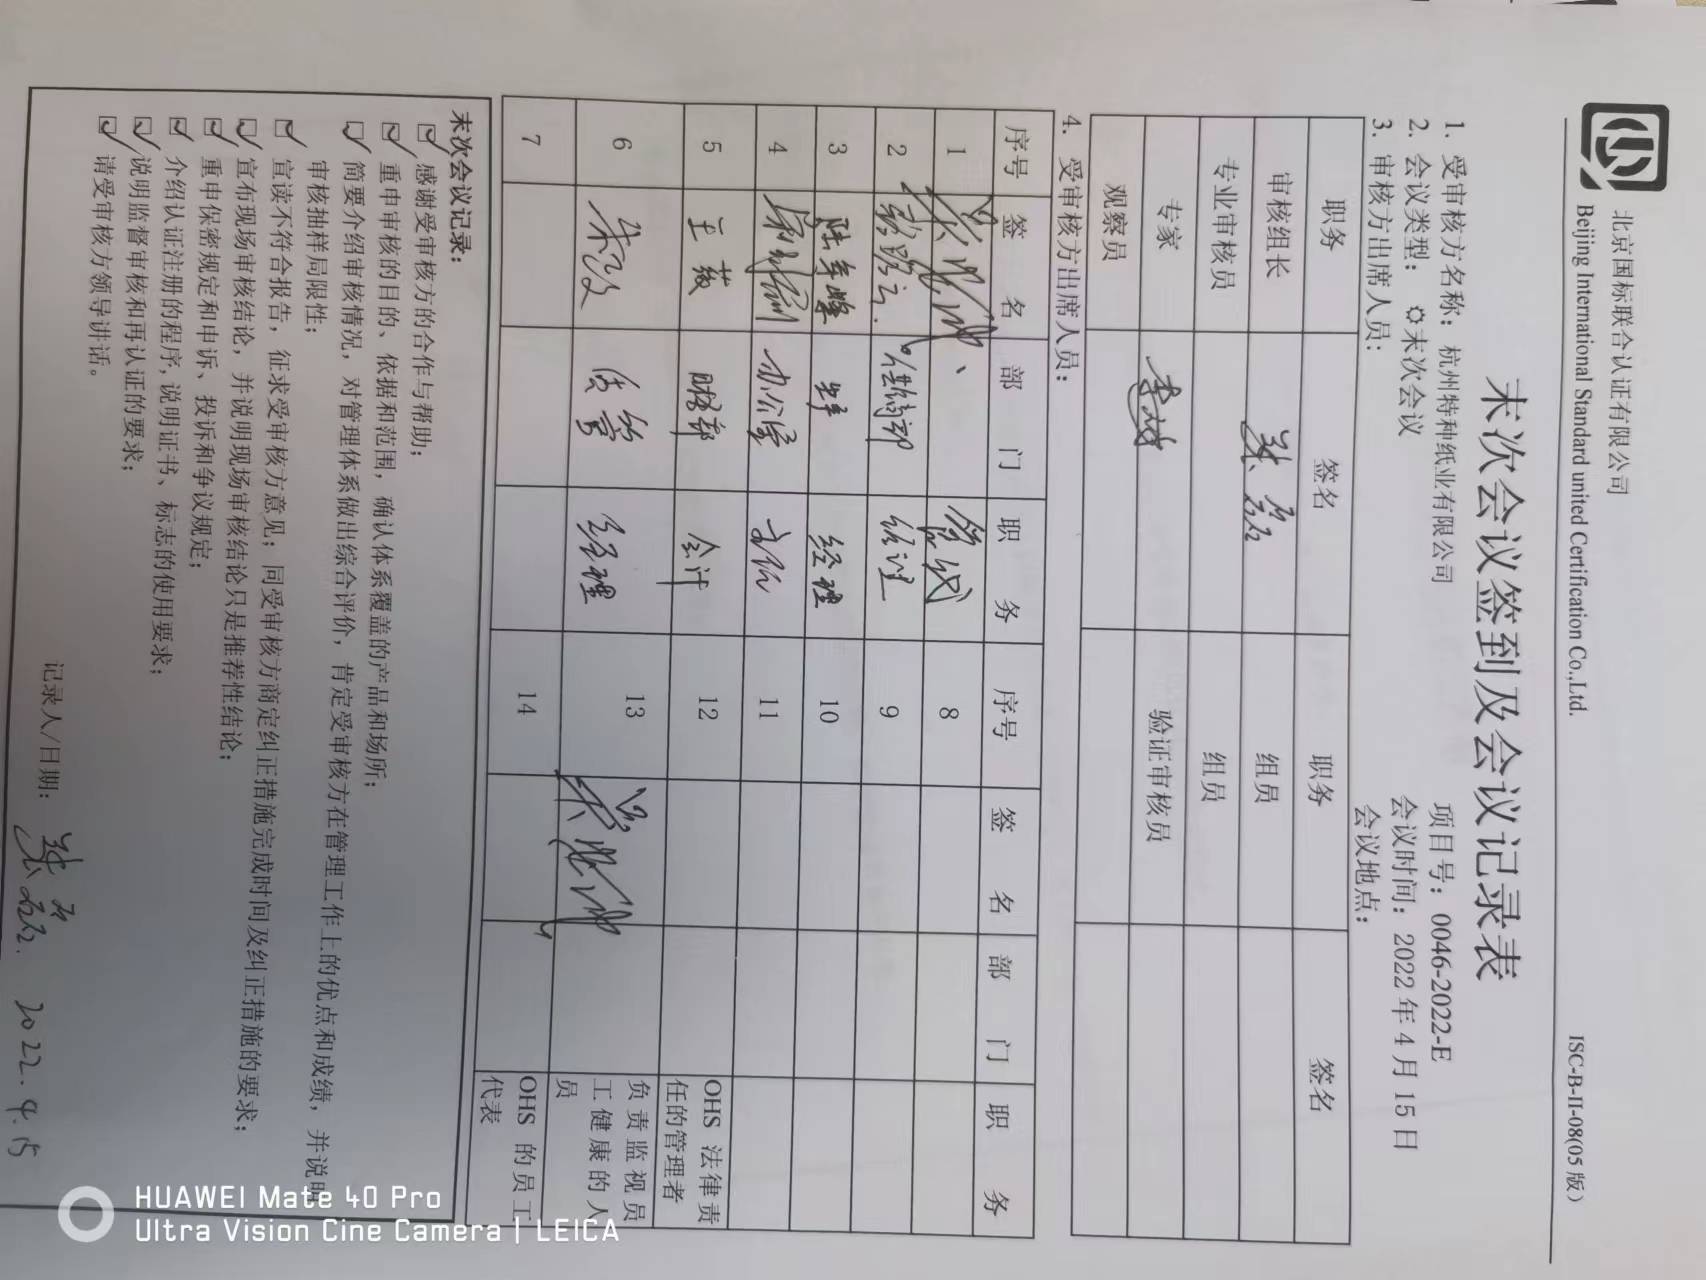 北京国标联合认证有限公司
Beijing International Standard united Certification Co.,Ltd. ISC-B-II-08(05 版)
末次会议签到及会议记录表
1. 受审核方名称：杭州特种纸业有限公司 项目号：0046-2022-E
2. 会议类型： 末次会议 会议时间：2022 年 4 月 15 日
3. 审核方出席人员: 会议地点：
职务 签名 职务 签名
审核组长 组员
专业审核员 组员
专家 验证审核员
观察员
4. 受审核方出席人员:
序号 签 名 部 门 职 务 序号 签 名 部 门 职 务
1 8
2 9
3 经理 10
4 办公室 主任 11
5 王 薇 财务部 会计 12 OHS 法律责任的管理者
6 经理 13 负责监视员工健康的人员
7 14 OHS 的员工代表
末次会议记录:
感谢受审核方的合作与帮助;
重申审核的目的、依据和范围，确认体系覆盖的产品和场所;
简要介绍审核情况，对管理体系做出综合评价，肯定受审核方在管理工作上的优点和成绩，并说明
审核抽样局限性;
宣读不符合报告，征求受审核方意见；同受审核方商定纠正措施完成时间及纠正措施的要求;
宣布现场审核结论，并说明现场审核结论只是推荐性结论;
重申保密规定和申诉、投诉和争议规定;
介绍认证注册的程序, 说明证书、标志的使用要求;
说明监督审核和再认证的要求;
请受审核方领导讲话。
记录人/日期： 2022.4.15
HUAWEI Mate 40 Pro
Ultra Vision Cine Camera | LEICA